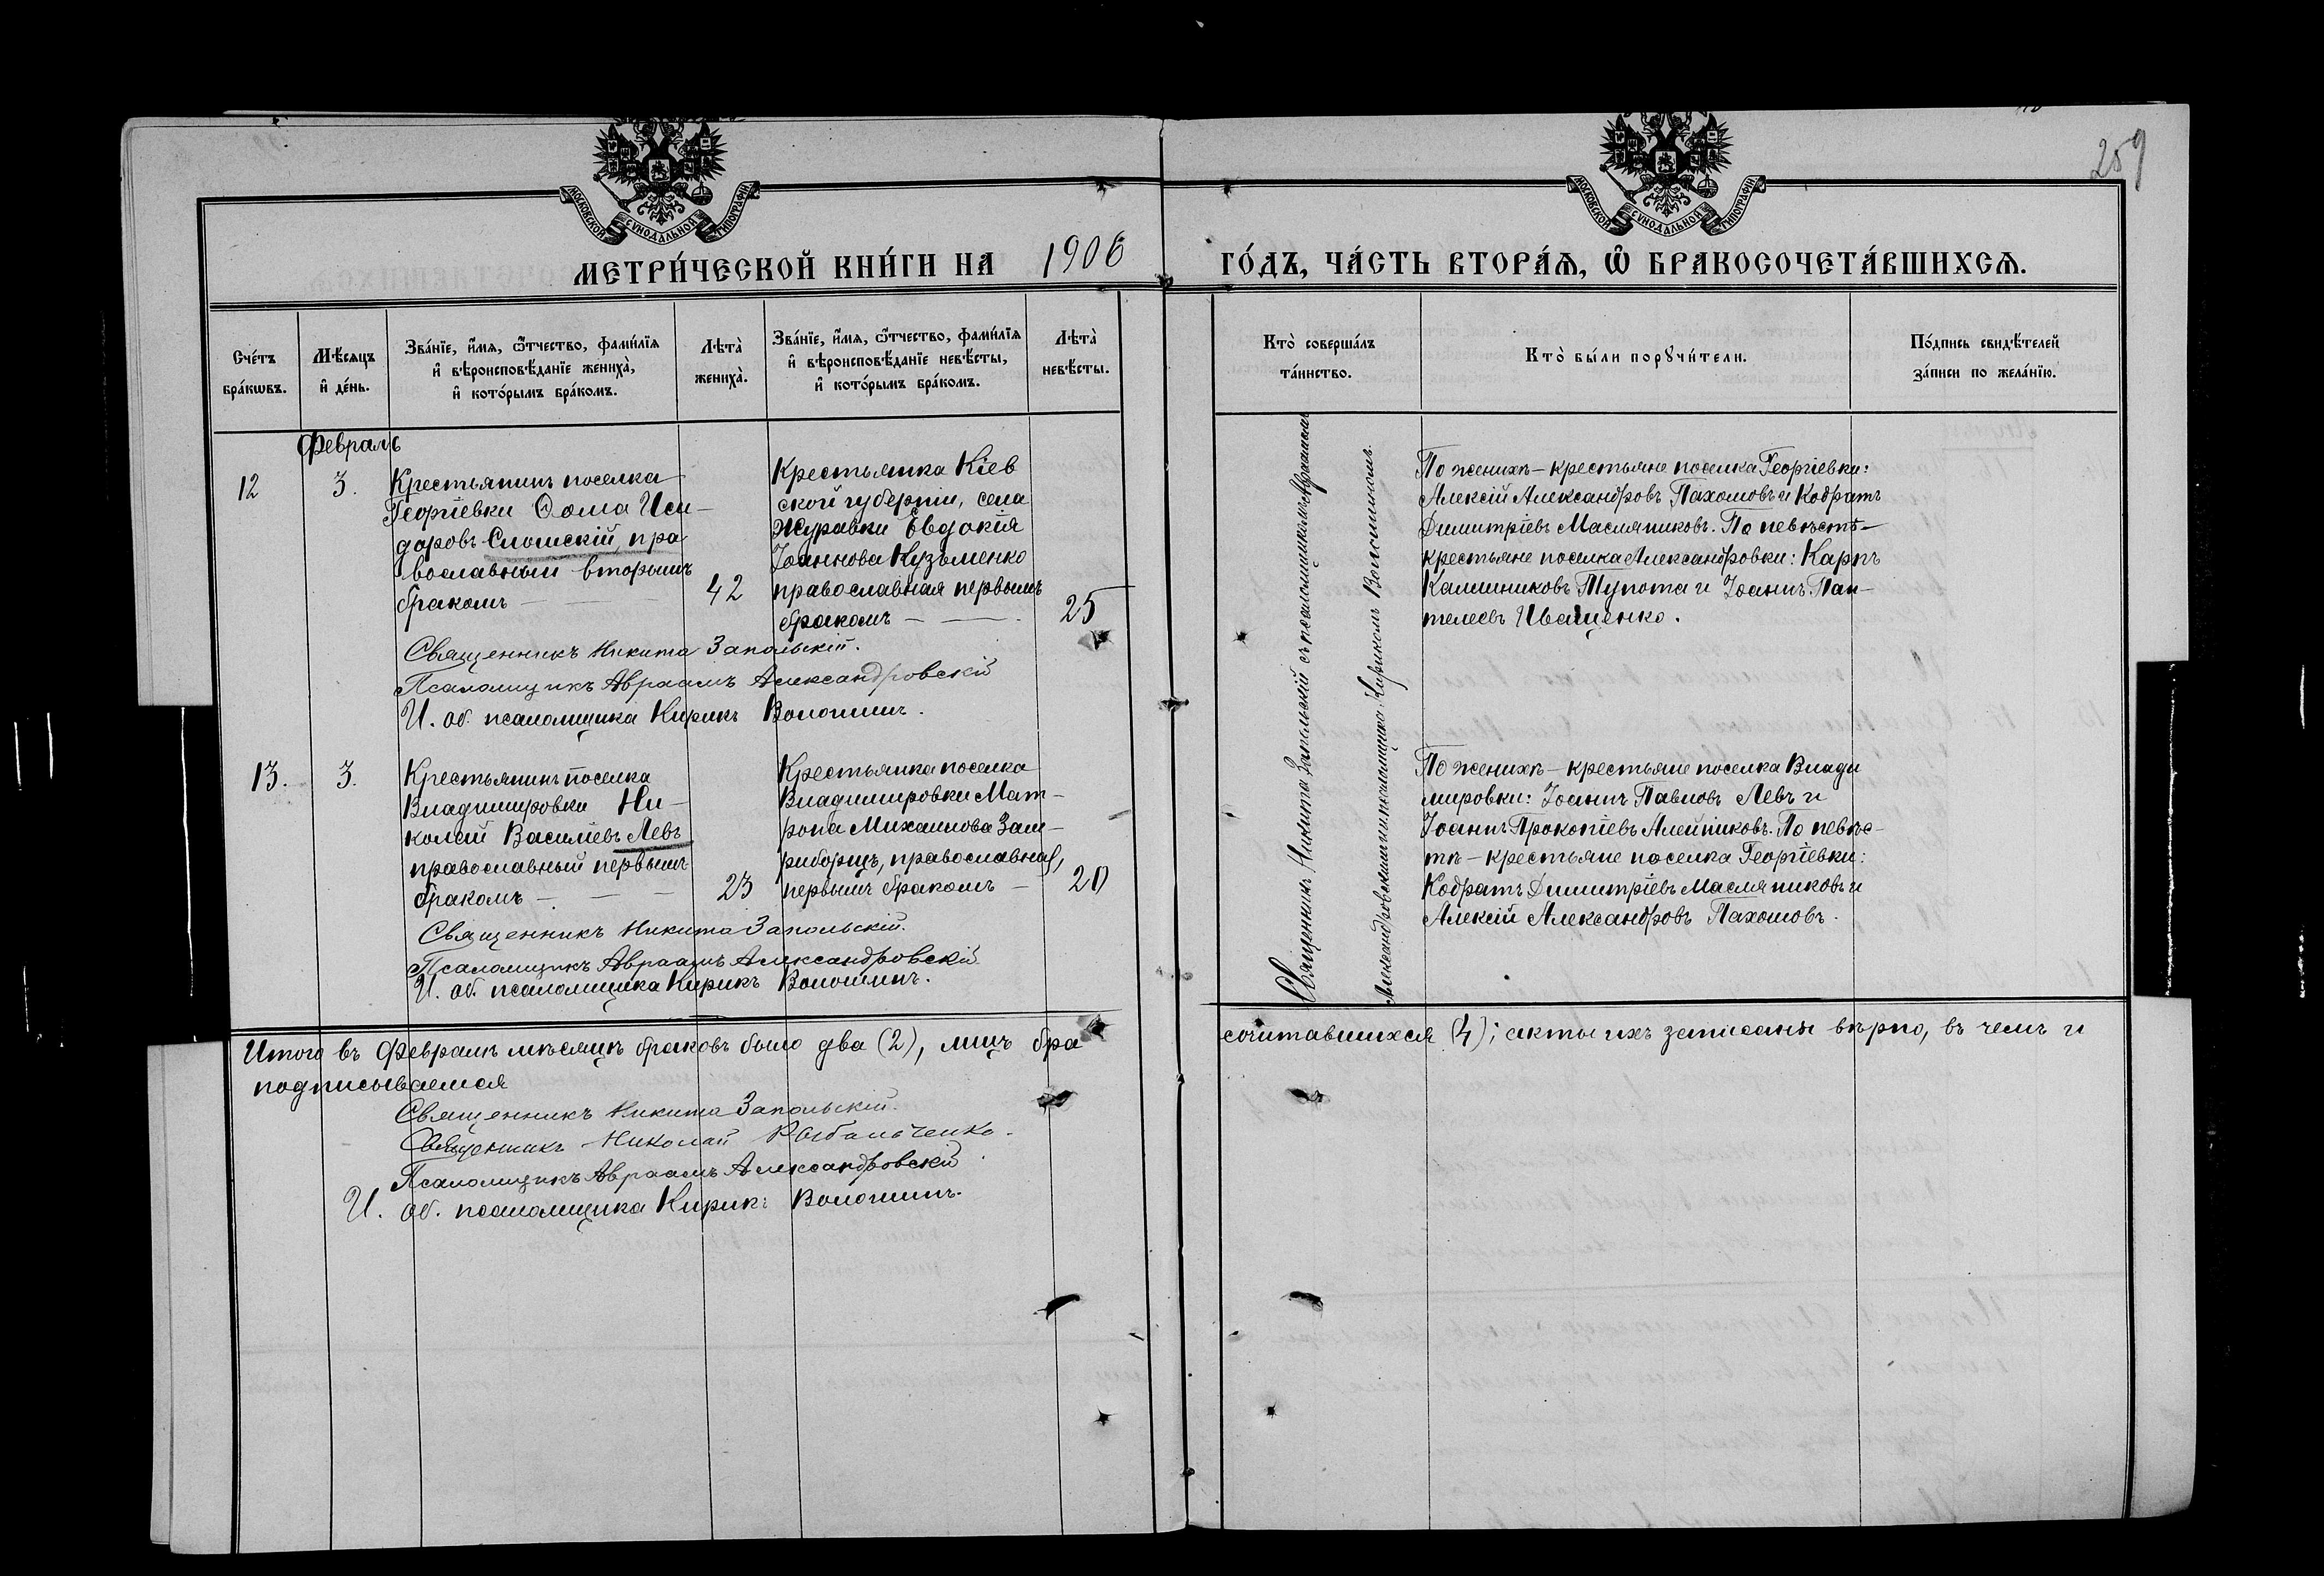 259
МОСКОВСКОЙ СѴНОДАЛЬНОЙ ТИПОГРАФІИ
МОСКОВСКОЙ СѴНОДАЛЬНОЙ ТИПОГРАФІИ
МЕТРИ́ЧЕСКОЙ КНИ́ГИ НА 1906 ГО́ДЪ, ЧА́СТЬ ВТОРА́Ѧ, Ѡ҆ БРАКОСОЧЕТА́ВШИХСѦ.
Сче́тъ бра́кѡвъ.
Мѣ́сѧцъ и҆ де́нь.
Зва́нїе, и҆́мѧ, ѻ҆́тчество, фами́лїѧ и҆ вѣроисповѣ́данїе жениха̀, и҆ кото́рымъ бра́комъ.
Лѣта̀ жениха̀.
Зва́нїе, и҆́мѧ, ѻ҆́тчество, фами́лїѧ и҆ вѣроисповѣ́данїе невѣ́сты, и҆ кото́рымъ бра́комъ.
Лѣта̀ невѣ́сты.
Кто̀ соверша́лъ та́инство.
Кто̀ бы́ли порꙋчи́тели.
По́дпись свидѣ́телей за́писи по жела́нїю.
Февраль
12
3.
Крестьянинъ поселка
Георгіевки Ѳома Иси-
доровъ Слошскій, пра
вославный вторымъ
бракомъ —
42
Крестьянка Кіев
ской губерніи, села
Журавки Евдокія
Іоаннова Кузьменко
православная первымъ
бракомъ —
25
По женихѣ — крестьяне поселка Георгіевки:
Алексій Александровъ Пахомовъ и Кодратъ
Димитріевъ Масляниковъ. По невѣстѣ —
крестьяне поселка Александровки: Карпъ
Калинниковъ Тупота и Іоаннъ Пан-
телеевъ Иващенко.
Священникъ Никита Запольскій.
Псаломщикъ Авраамъ Александровскій
И. об. псаломщика Кирикъ Волошинъ.
13.
3.
Крестьянинъ поселка
Владимировки Ни-
колай Василіевъ Левъ
православный первымъ
бракомъ —
23
Крестьянка поселка
Владимировки Мат-
рона Михаилова Зам-
риборщъ, православная,
первымъ бракомъ —
20
По женихѣ — крестьяне поселка Влади
мировки: Іоаннъ Павловъ Левъ и
Іоаннъ Прокопіевъ Алейниковъ. По невѣс-
тѣ — крестьяне поселка Георгіевки:
Кодратъ Димитріевъ Масляниковъ и
Алексій Александровъ Пахомовъ.
Священникъ Никита Запольскій.
Псаломщикъ Авраамъ Александровскій
И. об. псаломщика Кирикъ Волошинъ.
Священникъ Никита Запольскій съ псаломщикомъ Авраамомъ
Александровскимъ и и. псаломщика Кирикомъ Волошинымъ.
Итого въ Февралѣ мѣсяцѣ браковъ было два (2), лицъ бра
сочитавшихся (4); акты ихъ записаны вѣрно, въ чемъ и
подписываемся
Священникъ Никита Запольскій.
Священникъ Николай Рыбальченко.
Псаломщикъ Авраамъ Александровскій
И. об. псаломщика Кирикъ Волошинъ.